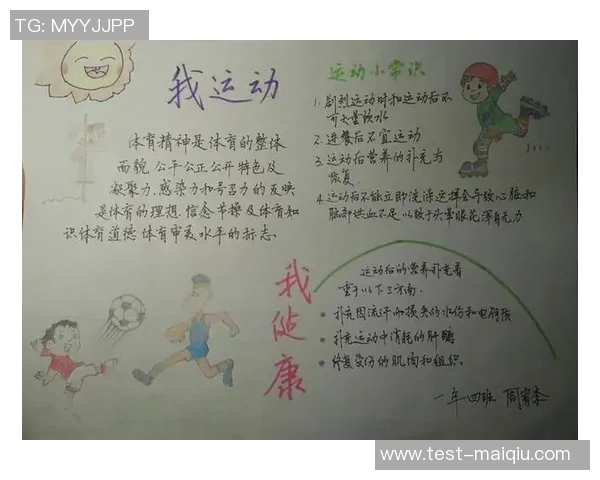 TG: MYYJJPP
我运动
体育精神是体育的整体
面貌,公平公正公开特色及
凝聚力,感染力和号召力的反映
是体育的理想,信念节操及体育知
识体育道德体育审美水平的标志.
运动小常识
1. 剧烈运动时和运动后不
可大量饮水
2. 进餐后不宜运动
3. 运动后营养的补充与
恢复.
4. 运动后不能立即洗澡这样会导致心脏和
脑部供血不足以致于头晕眼花浑身无力
我
健
康
运动后的营养补充着
重于以下三方面.
补充因流汗而损失的水份和电解质
补充运动中消耗的肝醣
修复受伤的肌肉和组织.
一年四班
www.test-maiqiu.com